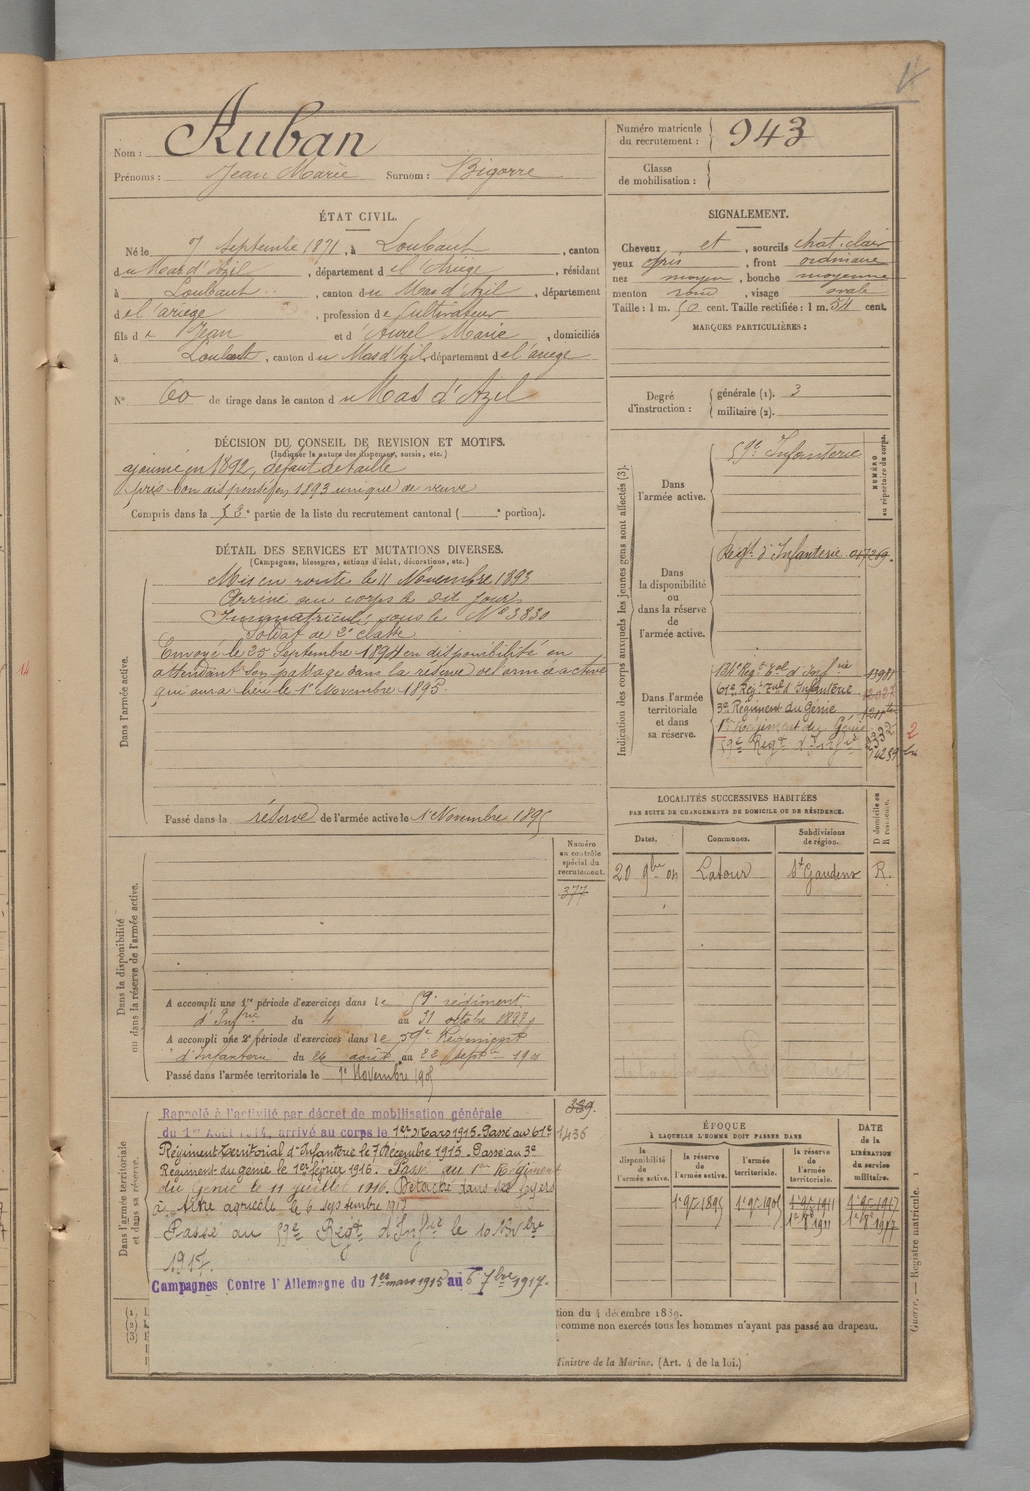 Nom : Auban
Prénoms : Jean Marie Surnom : Bigorre
Numéro matricule du recrutement : 943
Classe de mobilisation :
ÉTAT CIVIL.
Né le 7 Septembre 1871, à Loubaut, canton
du Mas d'Azil, département de l'Ariège, résidant
à Loubaut, canton du Mas d'Azil, département
de l'ariege, profession de Cultivateur
fils de Jean et d'Aurel Marie, domiciliés
à Loubaut, canton du Mas d'Azil, département de l'ariege
N° 60 de tirage dans le canton du Mas d'Azil
SIGNALEMENT.
Cheveux et sourcils chat. clair
yeux gris, front ordinaire
nez moyen, bouche moyenne
menton rond, visage ovale
Taille : 1 m. 50 cent. Taille rectifiée : 1 m. 54 cent.
MARQUES PARTICULIÈRES :
Degré d'instruction : générale (1). 3
militaire (2).
DÉCISION DU CONSEIL DE REVISION ET MOTIFS.
(Indiquer la nature des dispenses, sursis, etc.)
ajourné en 1892, défaut de taille
pris bon dispensé en 1893 unique de veuve
Compris dans la 3e partie de la liste du recrutement cantonal ( e portion).
DÉTAIL DES SERVICES ET MUTATIONS DIVERSES.
(Campagnes, blessures, actions d'éclat, décorations, etc.)
Dans l'armée active.
Mis en route le 11 Novembre 1893
Arrivé au corps le dit jour
Immatriculé sous le N° 3830
Soldat de 2e classe
Envoyé le 25 Septembre 1894 en disponibilité en
attendant son passage dans la réserve de l'armée active
qui aura lieu le 1er Novembre 1895.
Passé dans la réserve de l'armée active le 1er Novembre 1895
Indication des corps auxquels les jeunes gens sont affectés (3).
NUMÉRO au répertoire du corps.
Dans l'armée active.
59e Infanterie
Dans la disponibilité ou dans la réserve de l'armée active.
Régt. d'Infanterie
Dans l'armée territoriale et dans sa réserve.
134e Régt Tal d'Infrie
61e Régt Tal d'Infanterie
3e Régiment du Génie
1er Régiment du Génie
59e Régt d'Infie
LOCALITÉS SUCCESSIVES HABITÉES
PAR SUITE DE CHANGEMENTS DE DOMICILE OU DE RÉSIDENCE.
Dates. Communes. Subdivisions de région. D domicile ou R résidence.
20 9bre 04 Latour St Gaudens R.
Dans la disponibilité ou dans la réserve de l'armée active.
Numéro au contrôle spécial du recrutement.
377
A accompli une 1re période d'exercices dans le 59e régiment
d'Infrie du 4 au 31 octobre 1897
A accompli une 2e période d'exercices dans le 59e Régiment
d'Infanterie du 26 août au 22 septre 1901
Passé dans l'armée territoriale le 1er Novembre 1905
Dans l'armée territoriale et dans sa réserve.
1436
Rappelé à l'activité par décret de mobilisation générale
du 1er Août 1914, arrivé au corps le 1er Mars 1915. Passé au 61e
Régiment Territorial d'Infanterie le 7 Décembre 1915. Passé au 3e
Régiment du génie le 1er février 1916. Passé au 1er Régiment
du Génie le 11 juillet 1916. Détaché dans ses foyers
à titre agricole le 6 septembre 1917
Passé au 59e Régt d'Infie le 10 Novbre
1917.
Campagnes Contre l'Allemagne du 1er mars 1915 au 6 7bre 1917.
ÉPOQUE
À LAQUELLE L'HOMME DOIT PASSER DANS
la disponibilité de l'armée active. la réserve de l'armée active. l'armée territoriale. la réserve de l'armée territoriale.
DATE de la LIBÉRATION du service militaire.
1er 9bre 1895 1er 9bre 1905 1er 9bre 1911 1er 9bre 1917
(1)
(2)
(3)
tion du 4 décembre 1889.
comme non exercés tous les hommes n'ayant pas passé au drapeau.
Ministre de la Marine. (Art. 4 de la loi.)
Guerre. — Registre matricule. 1